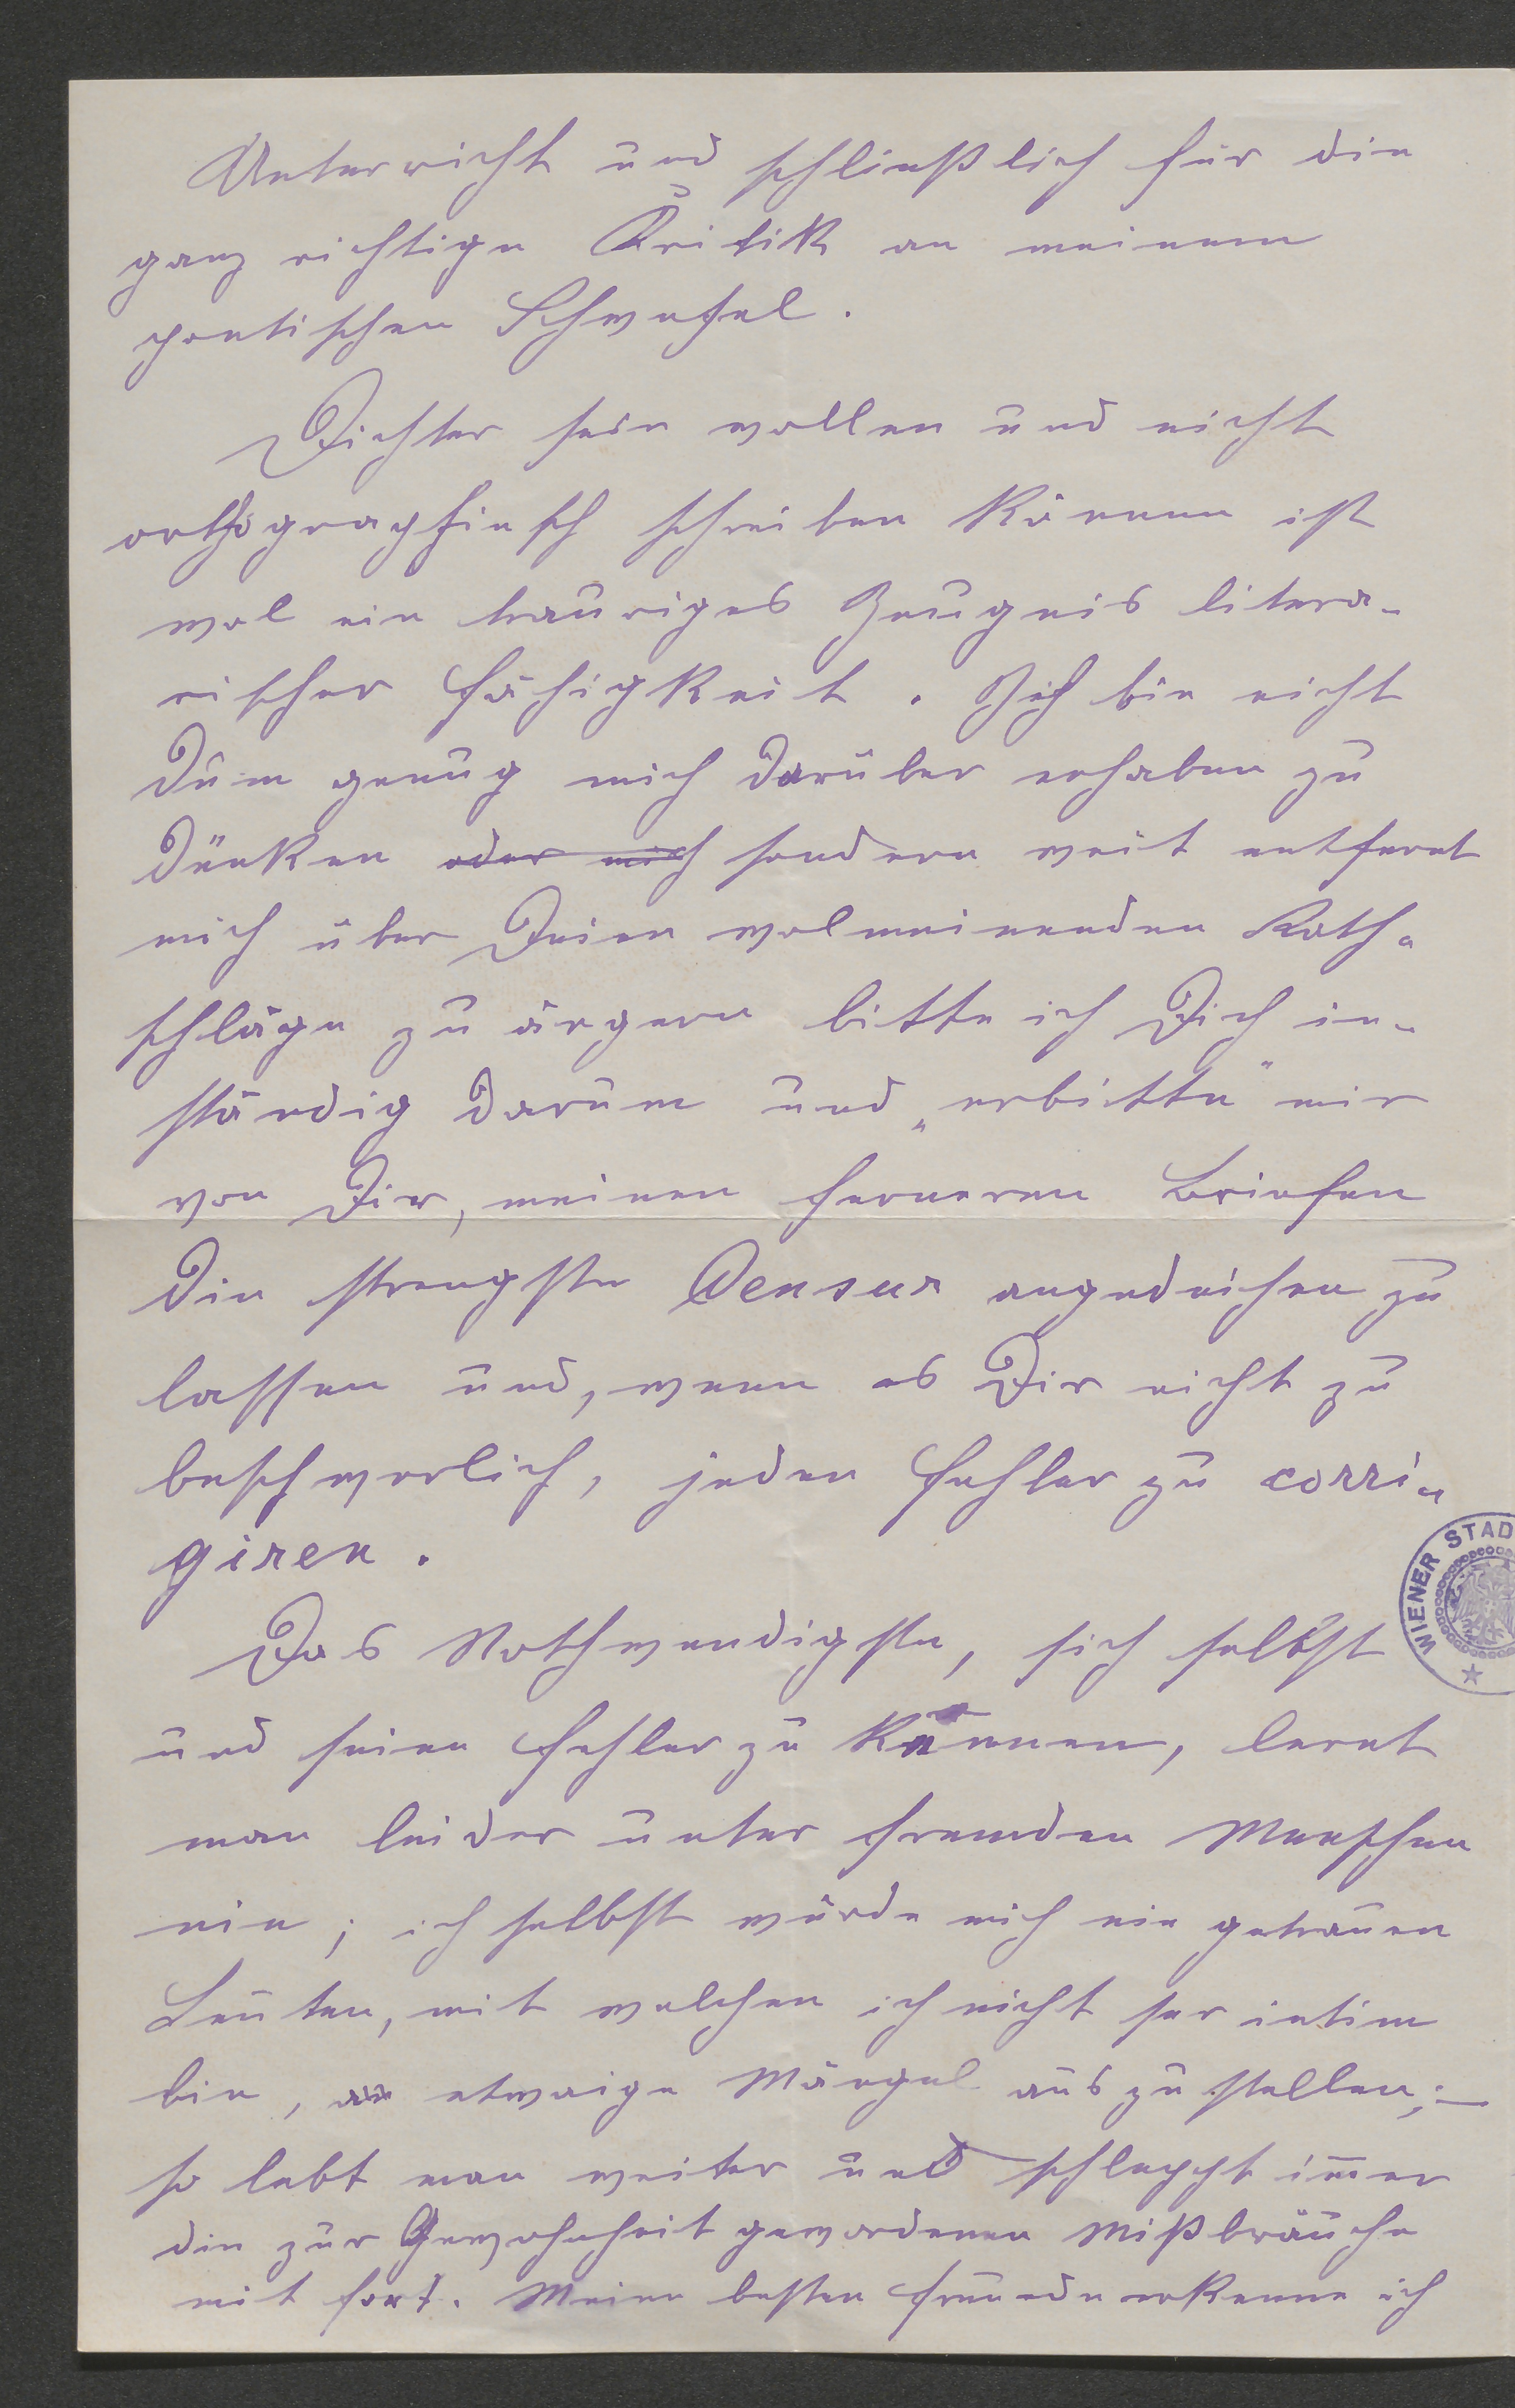 Unterricht und schließlich für die
ganz richtige Kritik an meinem
poetischen Schwefel.
Dichter sein wollen und nicht
orthographiesch schreiben können ist
wol ein trauriges Zeugnis litera-
rischer Fähigkeit. Ich bin nicht
dum genug mich darüber erhaben zu
dünken oder mich sondern weit entfernt
mich über Deine wolmeinenden Rath-
schläge zu ärgern bitte ich Dich in-
ständig darum und „erbitte" mir
von Dir, meinen ferneren Briefen
die strengste Censur angedeihen zu
lassen und, wenn es Dir nicht zu
beschwerlich, jeden Fehler zu corri-
giren.
Das Nothwendigste, sich selbst
und seine Fehler zu kennen, lernt
man leider unter fremden Menschen
nie; ich selbst würde mich nie getrauen
Leuten, mit welchen ich nicht ser intim
bin, etwaige Mängel auszustellen;—
so lebt man weiter und schleppt im̅er
die zur Gewohnheit gewordenen Mißbräuche
mit fort. Meine besten Freunde erkenne ich
WIENER STAD